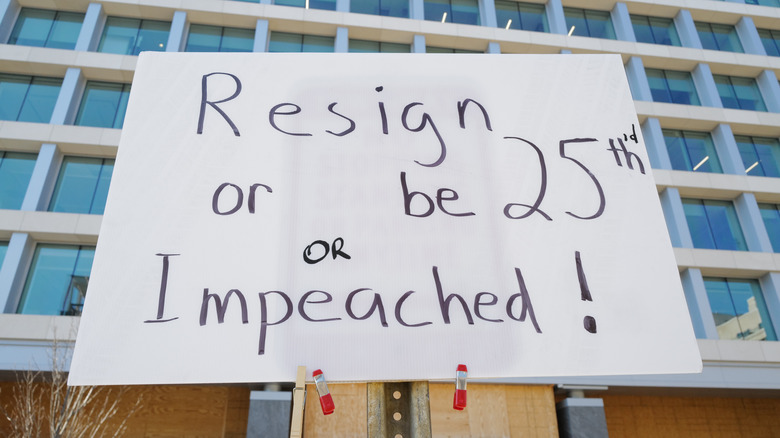 Resign
or be 25th'd
OR
Impeached!